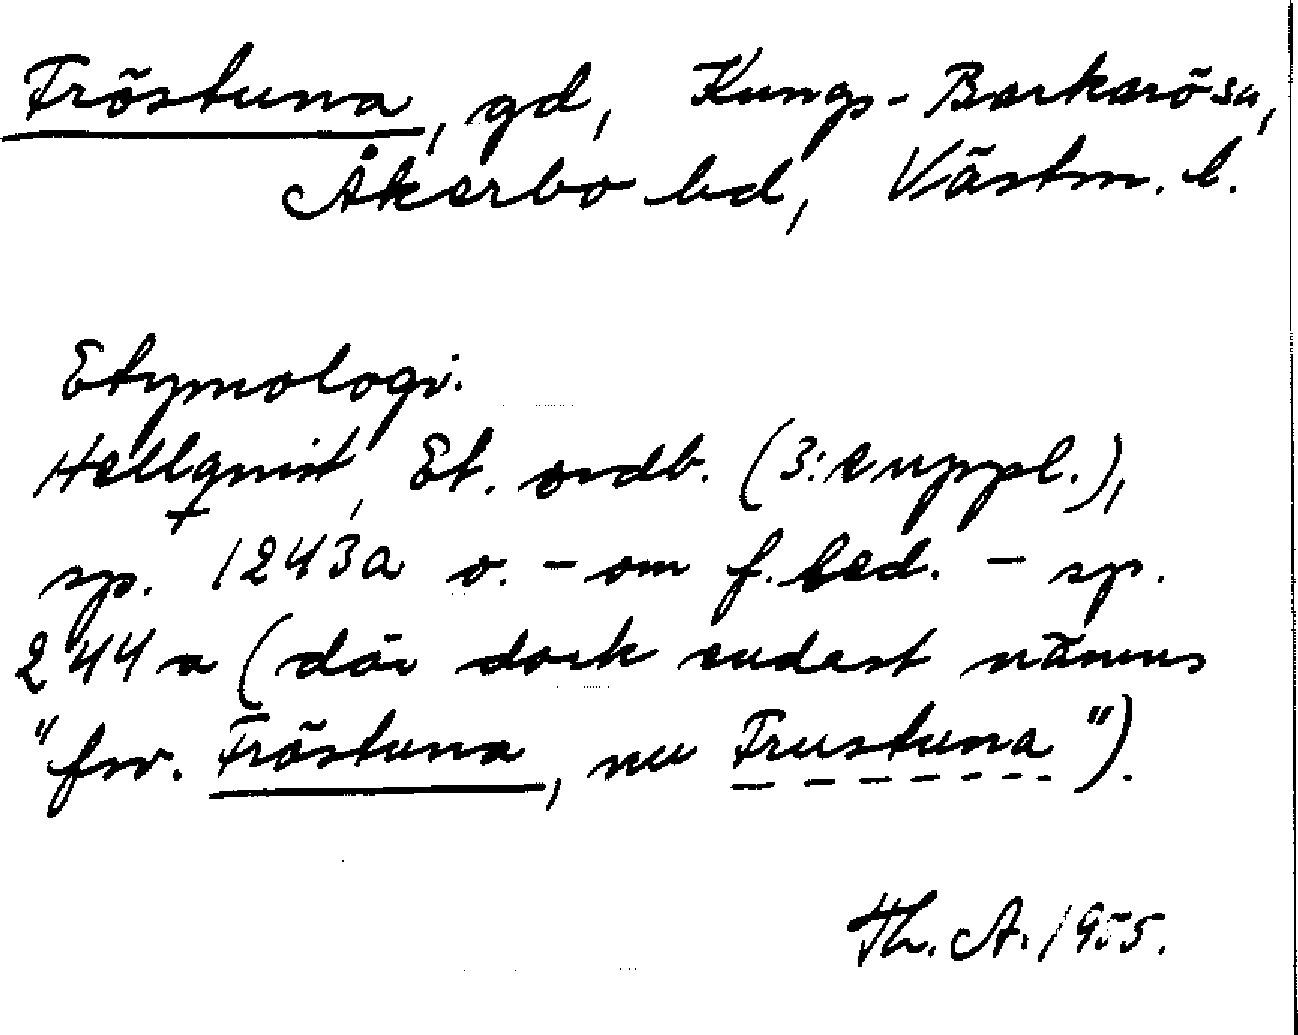 Fröstuna, gd, Kungs-Barkarö sn,
Åkerbo hd, Västm. l.
Etymologi.
Hellquist, Et. ordb. (3: e uppl.),
sp. 1243a o. - om f. led. - sp.
244 a (där dock endast nämns
"fsv. Fröstuna, nu Frustuna").
Th. A. 1955.